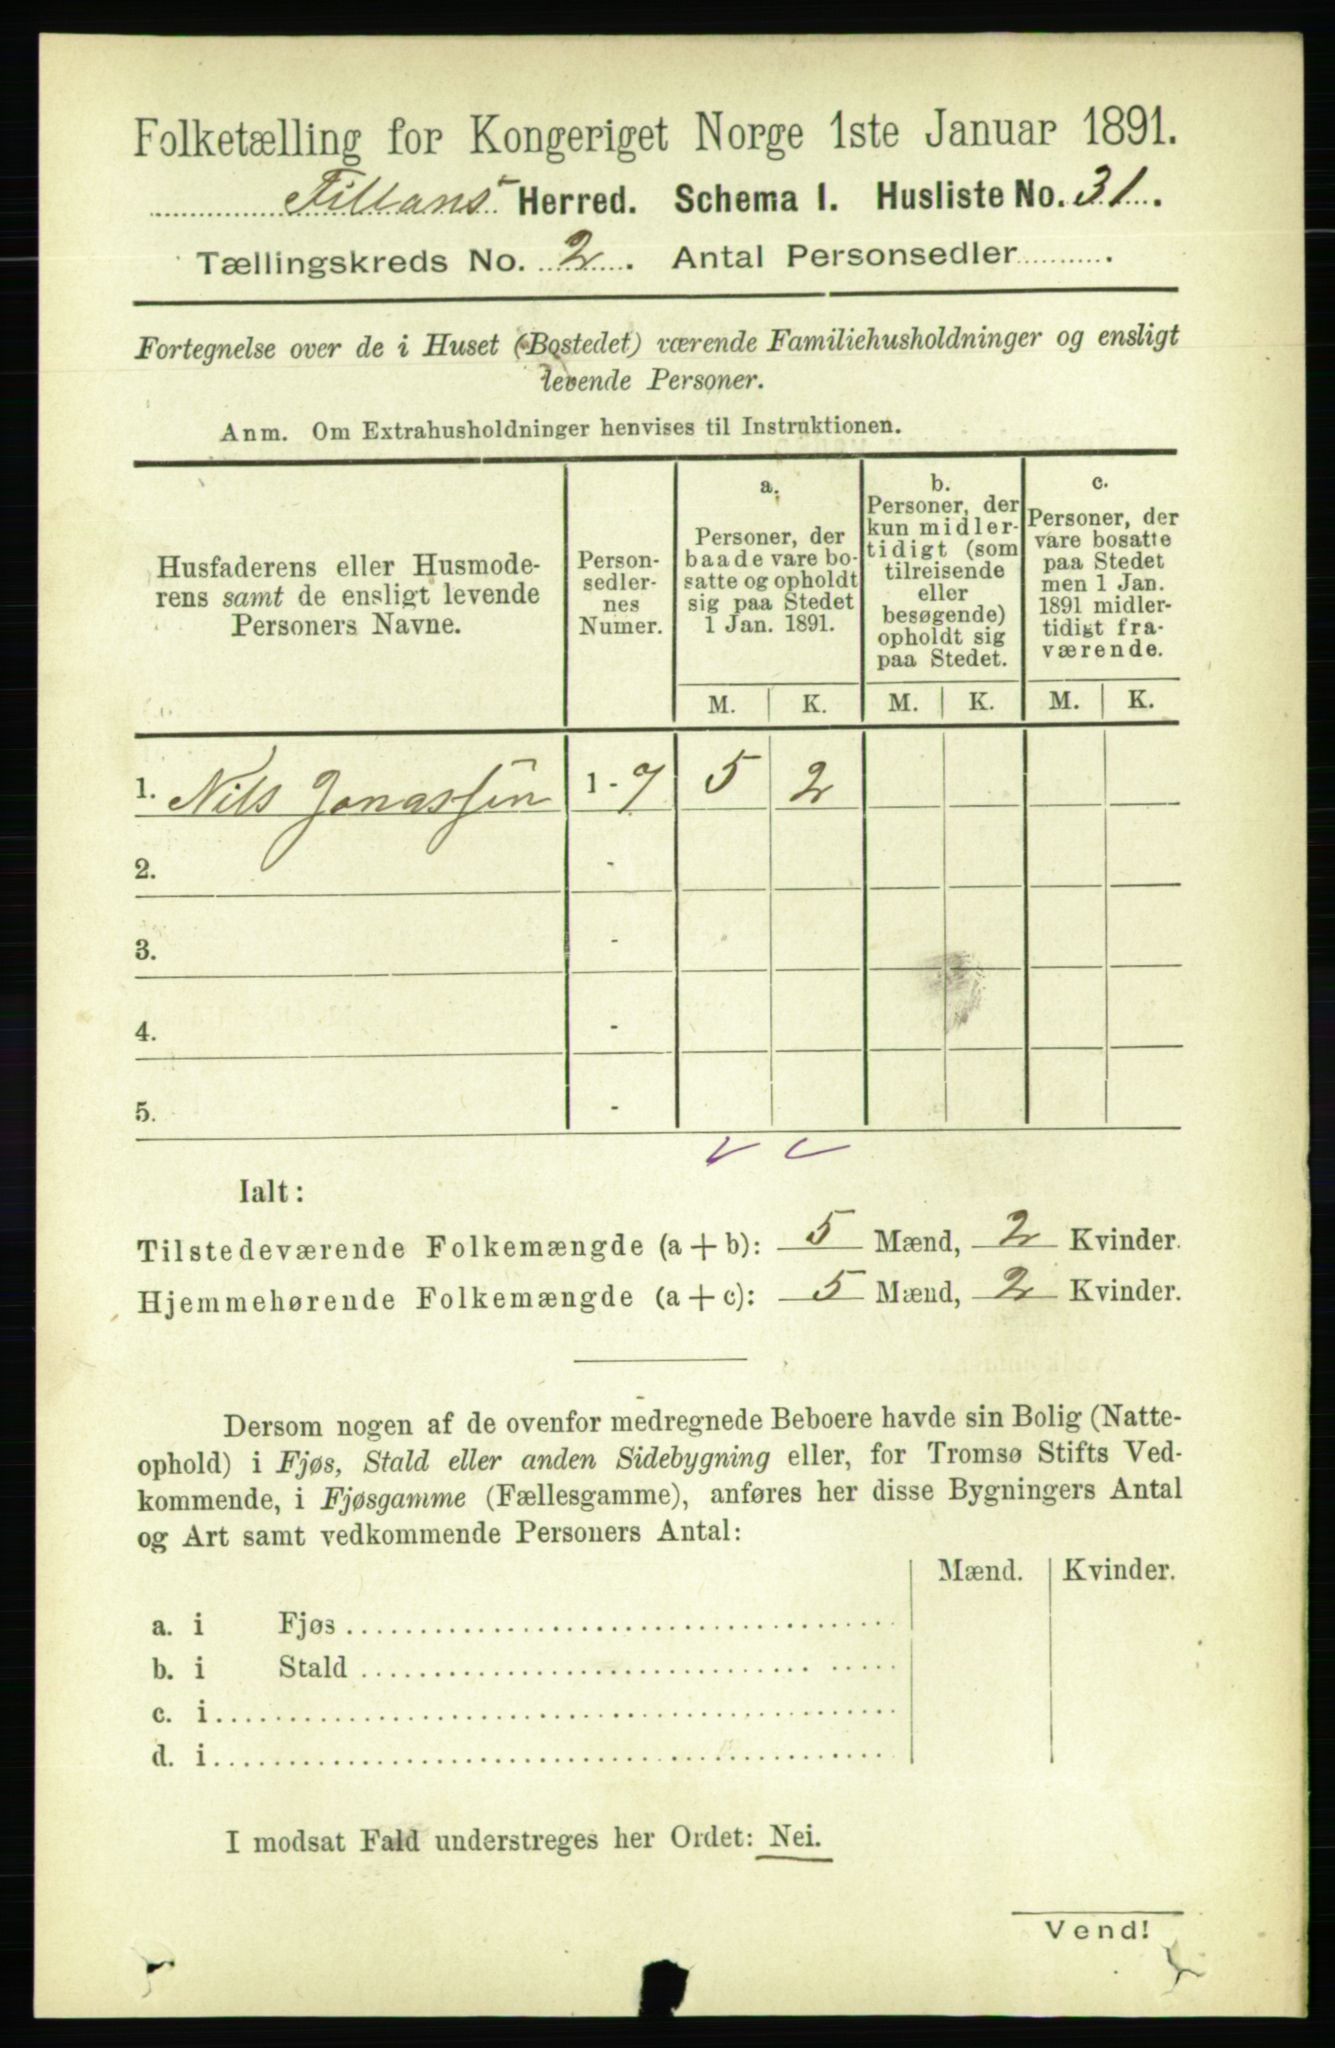 Folketælling for Kongeriget Norge 1ste Januar 1891.
Fillans Herred. Schema 1. Husliste No. 31.
Tællingskreds No. 2. Antal Personsedler..........
Fortegnelse over de i Huset (Bostedet) værende Familiehusholdninger og ensligt
levende Personer.
Anm. Om Extrahusholdninger henvises til Instruktionen.
Husfaderens eller Husmode-
rens samt de ensligt levende
Personers Navne.
Person-
sedler-
nes
Numer.
a.
Personer, der
baade vare bo-
satte og opholdt
sig paa Stedet
1 Jan. 1891.
b.
Personer, der
kun midler-
tidigt (som
tilreisende
eller
besøgende)
opholdt sig
paa Stedet.
c.
Personer, der
vare bosatte
paa Stedet
men 1 Jan.
1891 midler-
tidigt fra-
værende.
M. K. M. K. M. K.
1. Nils Jonassen 1 - 7 5 2
2. -
3. -
4. -
5. -
Ialt:
Tilstedeværende Folkemængde (a + b): 5 Mænd, 2 Kvinder.
Hjemmehørende Folkemængde (a + c): 5 Mænd, 2 Kvinder.
Dersom nogen af de ovenfor medregnede Beboere havde sin Bolig (Natte-
ophold) i Fjøs, Stald eller anden Sidebygning eller, for Tromsø Stifts Ved-
kommende, i Fjøsgamme (Fællesgamme), anføres her disse Bygningers Antal
og Art samt vedkommende Personers Antal:
Mænd. Kvinder.
a. i Fjøs
b. i Stald
c. i
d. i
I modsat Fald understreges her Ordet: Nei.
Vend!